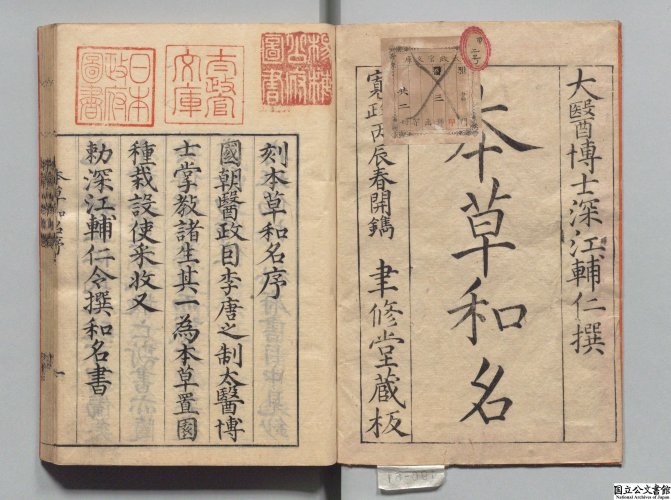 大醫博士深江輔仁撰
本草和名
寛政丙辰春開鐫 聿修堂藏板
刻本草和名序
國朝醫政因李唐之制太醫博
士掌教諸生其一為本草置園
種栽設使采收又
勅深江輔仁令撰和名書
本草和名序
一
太政官文庫
共二
三
太政官文庫
日本政府圖書
国立公文書館
National Archives of Japan